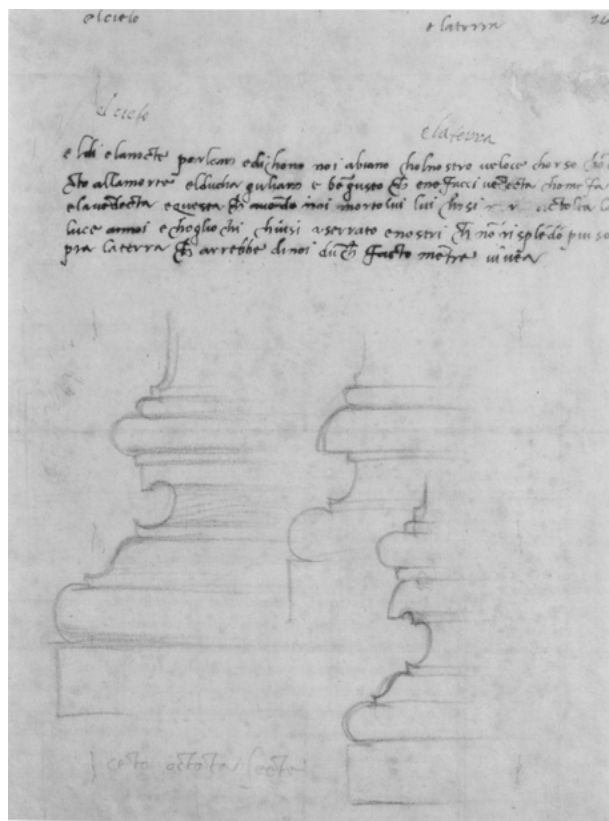 el cielo e la terra
el cielo e la terra
e ldi e lanocte parlano e dichono noi abiano cholnostro veloce chorso
allamorte elducha guliano e be gusto ch ene facci vedecta chome fa
e lavedecta e questa ch avendo noi mortolui lui chosi tolta la
luce annoi e chogliochi chiusi aserrato enostri ch no rispledo piu so
pra laterra ch arrebbe dinoi duch facto metre vivea
ceto octota